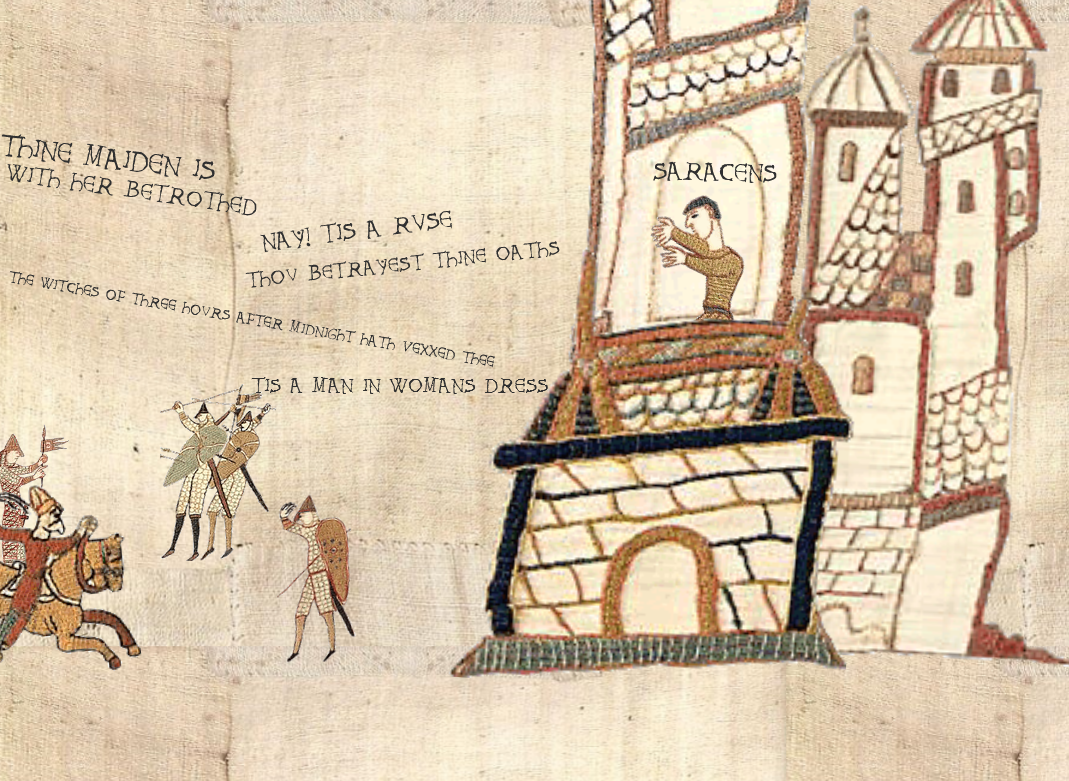 THINE MAIDEN IS
WITH HER BETROTHED
NAY! TIS A RVSE
THOV BETRAYEST THINE OATHS
THE WITCHES OF THREE HOVRS AFTER MIDNIGHT HATH VEXXED THEE
TIS A MAN IN WOMANS DRESS
SARACENS